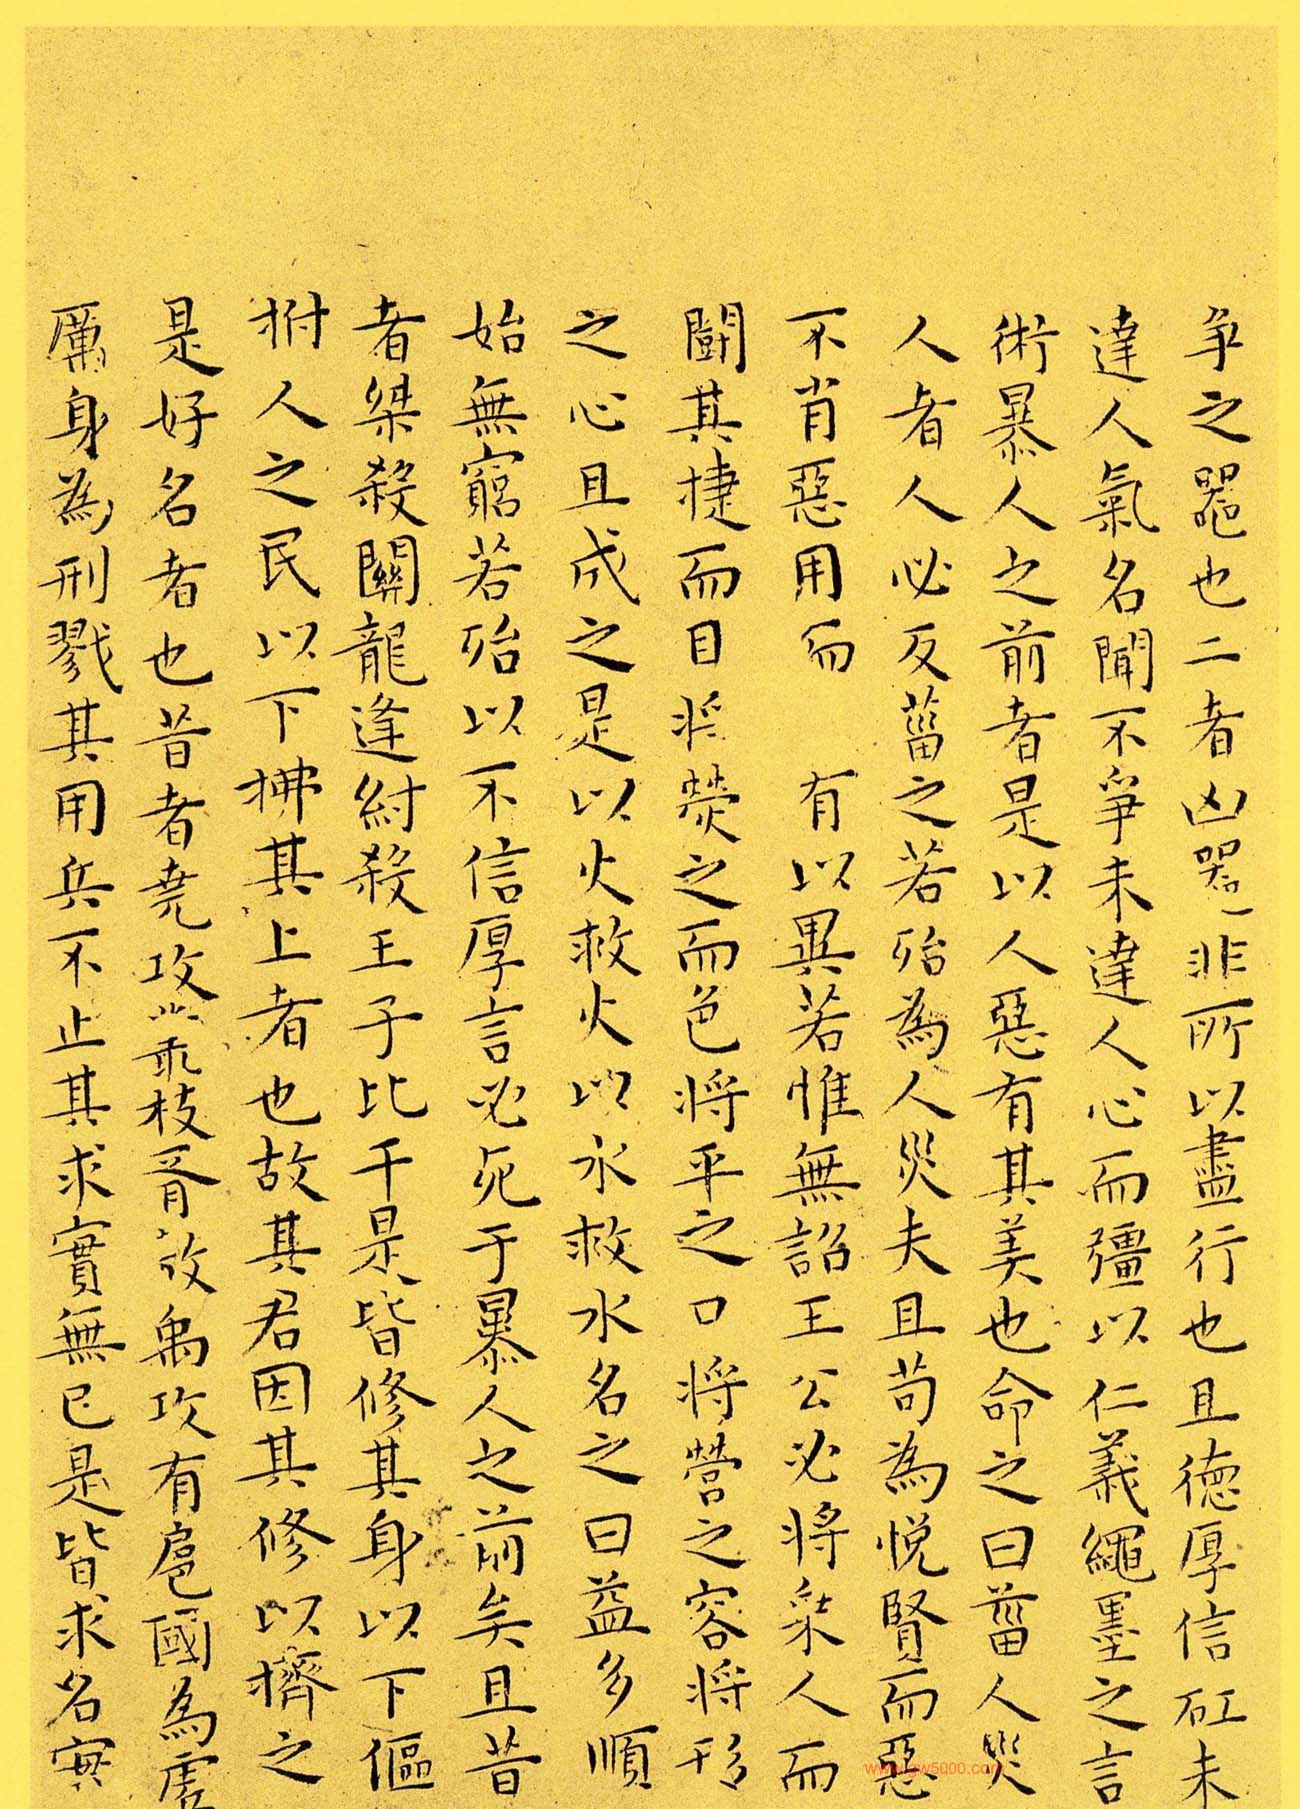 争之器也二者凶器非所以盡行也且德厚信矼未
達人氣名聞不爭未達人心而彊以仁義繩墨之言
術暴人之前者是以人惡有其美也命之曰菑人災
人者人必反菑之若殆為人災夫且苟為悅賢而惡
不肖惡用而 有以異若惟無詔王公必將乘人而
鬪其捷而目将熒之而色将平之口将營之容将形
之心且成之是以火救火以水救水名之曰益多順
始無窮若殆以不信厚言必死于暴人之前矣且昔
者桀殺關龍逢紂殺王子比干是皆修其身以下傴
拊人之民以下拂其上者也故其君因其修以擠之
是好名者也昔者堯攻叢枝胥敖禹攻有扈國為虛
厲身為刑戮其用兵不止其求實無已是皆求名實
www.yw5000.com